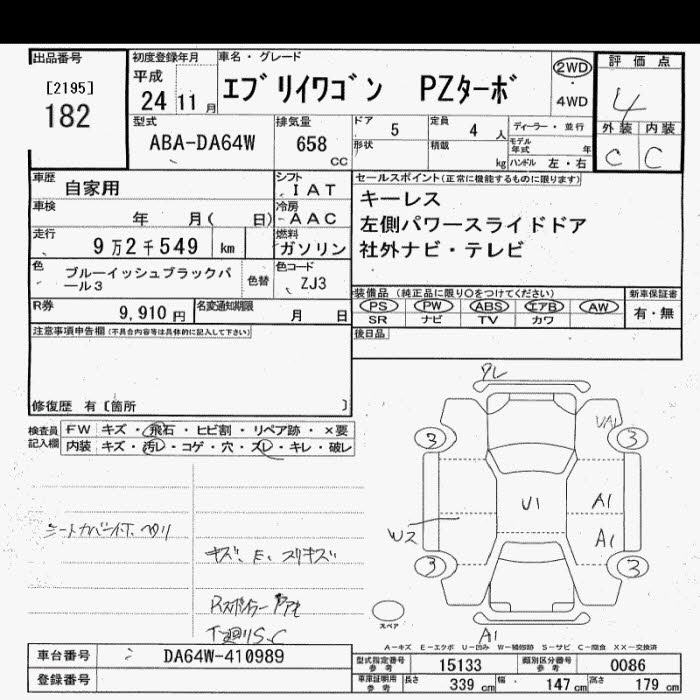 出品番号
[2195]
182
初度登録年月
平成
24 11 月
車名・グレード
エブリイワゴン PZターボ
2WD
・
4WD
評価点
4
外装 内装
C C
型式
ABA-DA64W
排気量
658
CC
ドア 5
定員 4 人
ディーラー・並行
形状
積載 kg
モデル年式 年
ハンドル 左・右
車歴 自家用
シフト
IAT
車検 年 月( 日)
冷房
AAC
走行 9万2千549 km
燃料
ガソリン
色 ブルーイッシュブラックパール3
色替
色コード
ZJ3
R券 9,910 円
名変通知期限 月 日
セールスポイント(正常に機能するものに限ります)
キーレス
左側パワースライドドア
社外ナビ・テレビ
装備品 (純正品に限り○をつけてください)
新車保証書
PS PW ABS エアB AW
SR ナビ TV カワ
有・無
後日品
注意事項申告欄(不具合内容等は具体的に記入して下さい)
修復歴 有〔箇所 〕
検査員記入欄
FW キズ・飛石・ヒビ割・リペア跡・×要
内装 キズ・汚レ・コゲ・穴・スレ・キレ・破レ
キズ、E、スリキズ
T廻りS.C
UA1
3 3
U1
A1
A1
W2
3 3
スペア
A1
A-キズ E-エクボ U-凹み W-補修跡 S-サビ C-腐食 XX-交換済
車台番号 DA64W-410989
登録番号
型式指定番号参考 15133
類別区分番号参考 0086
車庫証明用参考 長さ 339 cm 幅 147 cm 高さ 179 cm